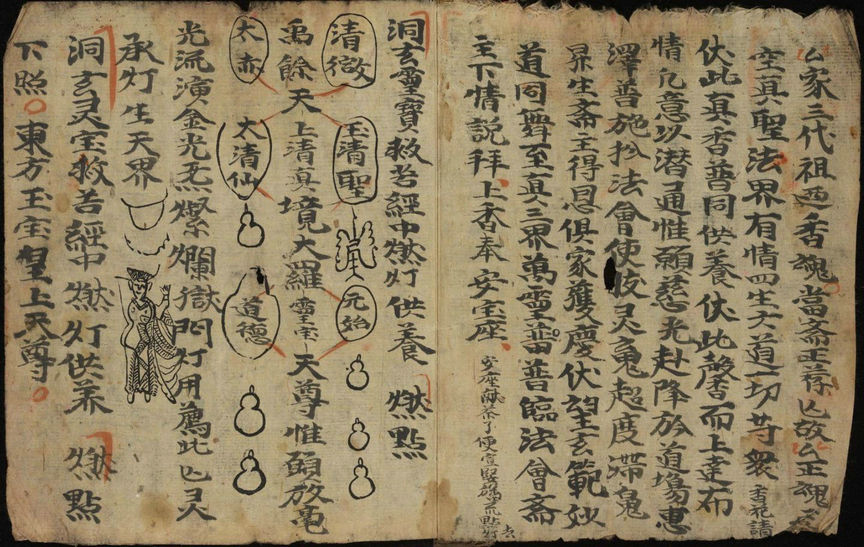 厶家三代祖香魂當斋正荐亾故厶正魂
空真聖法界有情四生六道一切苛衆 香花請
伏此真香普同供養伏此馨香而上達布
情凡意以潜通惟願慈光赴降於道塲惠
澤普施扵法會使彼灵䰟超度滞䰟
昇生斋主得恩俱家獲慶伏望玄範妙
道同舞至真三界萬靈普普臨法會斋
主下情説拜上香奉安宝座
安座献茶了便宣點灯去
洞玄靈寶救苦經中燃灯供養 燃點
清微 玉清聖 元始
禹餘天上清真境大羅靈宝天尊惟願放毫
太赤 太清仙 道德
光流演金光燦爛獄門灯用薦此亾灵
承灯生天界
洞玄灵宝救苦經中燃灯供养 燃點
下照○東方玉宝皇上天尊○